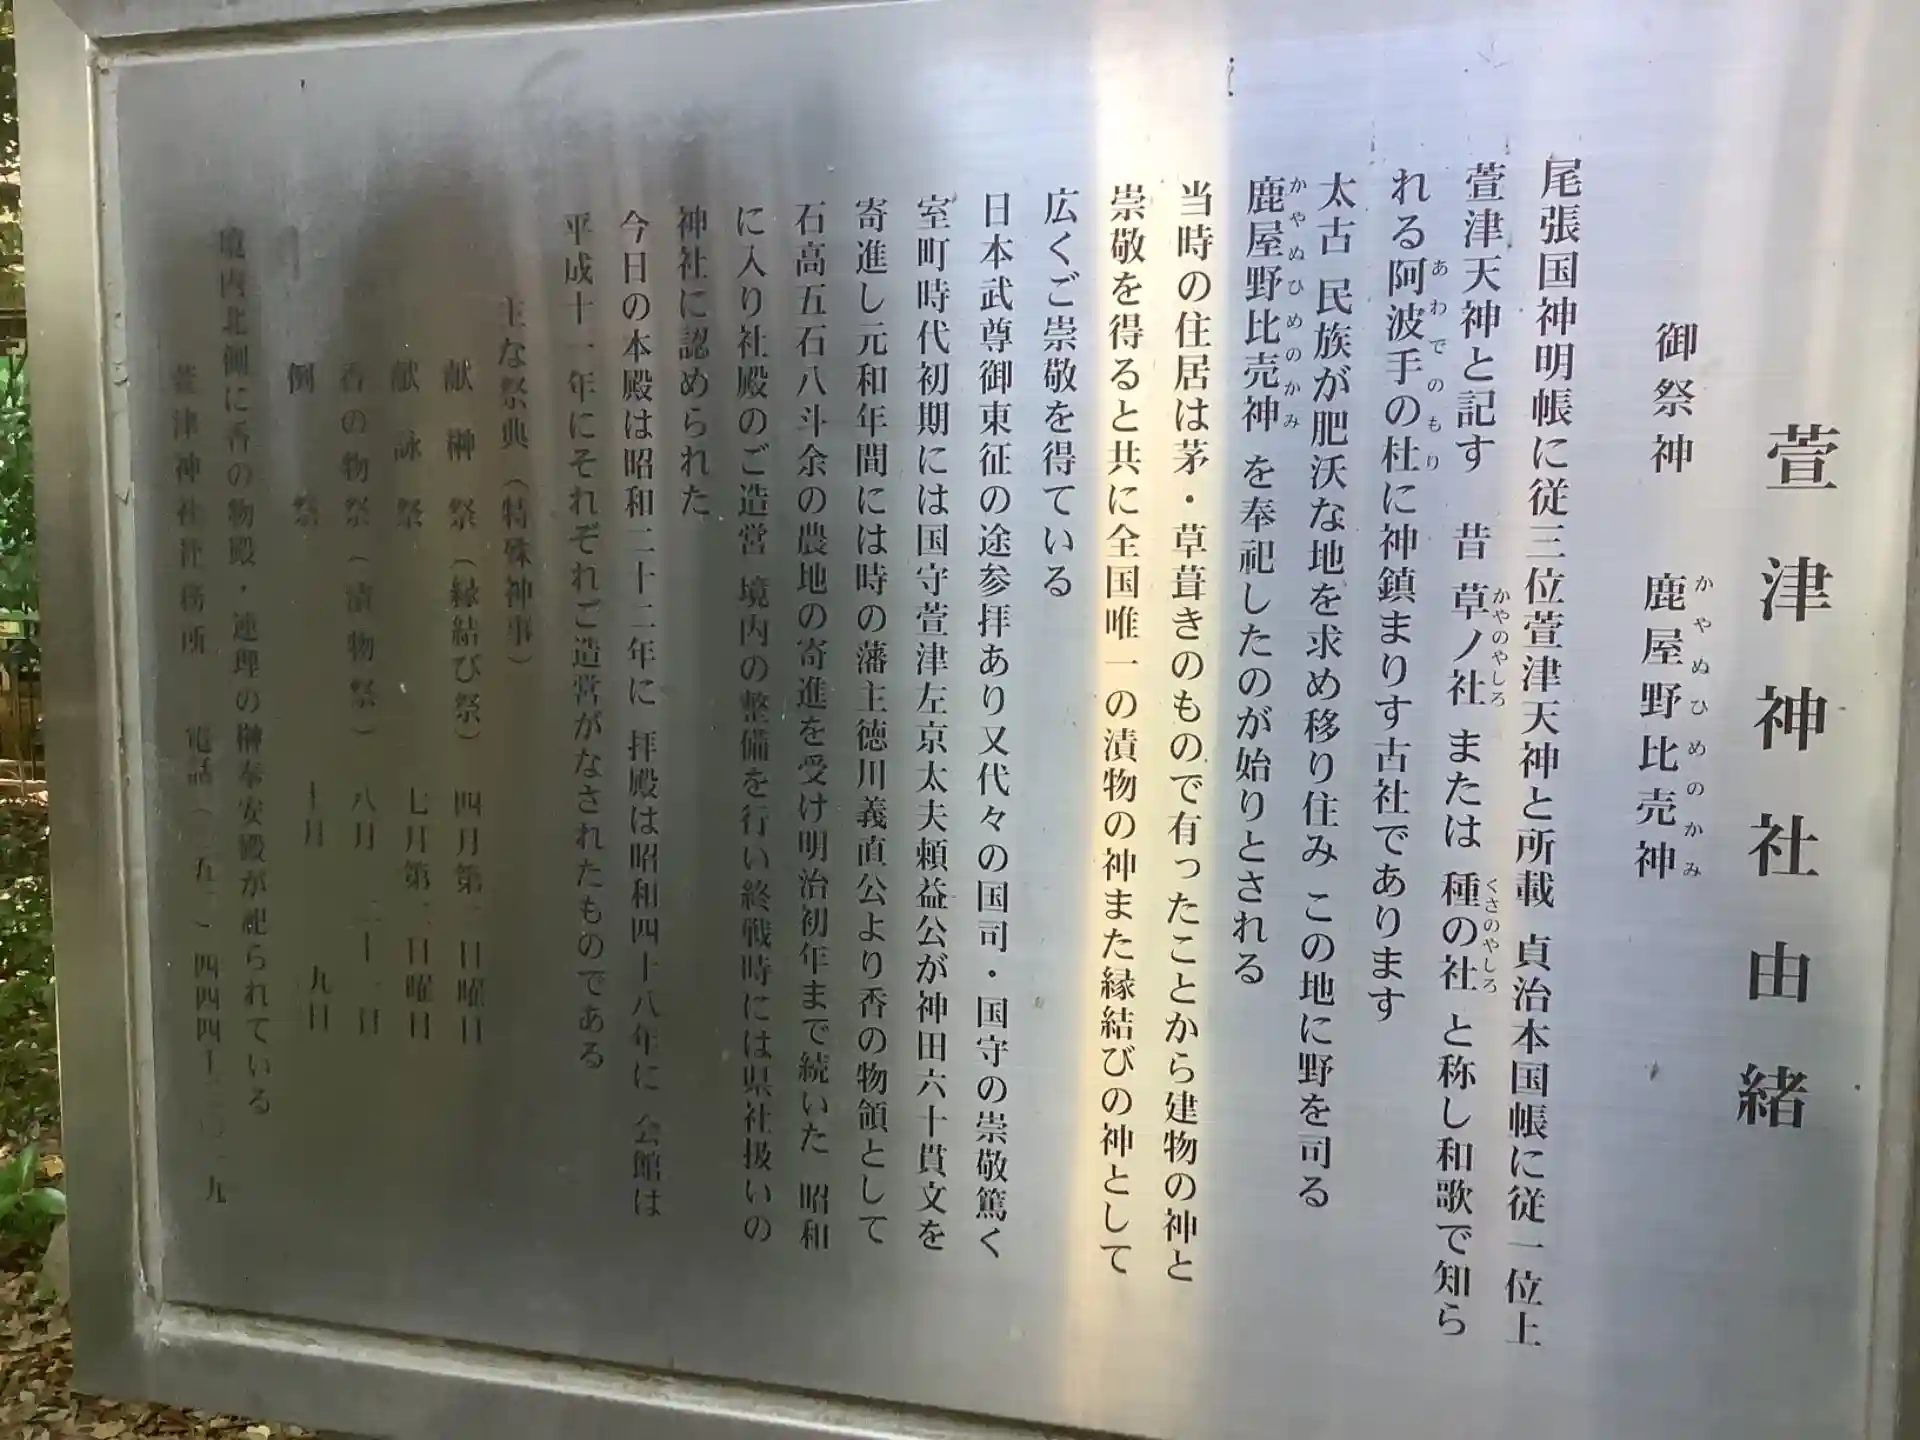 萱津神社由緒
御祭神　鹿屋野比売神
かやぬひめのかみ
尾張国神明帳に従三位萱津天神と所載 貞治本国帳に従一位上
萱津天神と記す　昔 草ノ社 または 種の社 と称し和歌で知ら
かやのやしろ　くさのやしろ
れる阿波手の杜に神鎮まりす古社であります
あわでのもり
太古 民族が肥沃な地を求め移り住み この地に野を司る
鹿屋野比売神 を奉祀したのが始りとされる
かやぬひめのかみ
当時の住居は茅・草葺きのもので有ったことから建物の神と
崇敬を得ると共に全国唯一の漬物の神また縁結びの神として
広くご崇敬を得ている
日本武尊御東征の途参拝あり又代々の国司・国守の崇敬篤く
室町時代初期には国守萱津左京太夫頼益公が神田六十貫文を
寄進し元和年間には時の藩主徳川義直公より香の物領として
石高五石八斗余の農地の寄進を受け明治初年まで続いた 昭和
に入り社殿のご造営 境内の整備を行い終戦時には県社扱いの
神社に認められた
今日の本殿は昭和二十二年に 拝殿は昭和四十八年に 会館は
平成十一年にそれぞれご造営がなされたものである
主な祭典（特殊神事）
献榊祭（縁結び祭）　四月第二日曜日
献詠祭　七月第二日曜日
香の物祭（漬物祭）　八月　二十一日
例祭　十月　九日
境内北側に香の物殿・連理の榊奉安殿が祀られている
萱津神社社務所　電話